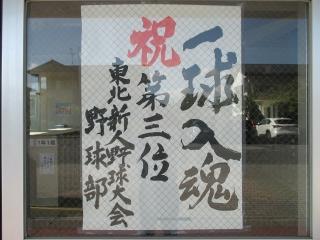 一球入魂
祝
第三位
東北新人野球大会
野球部